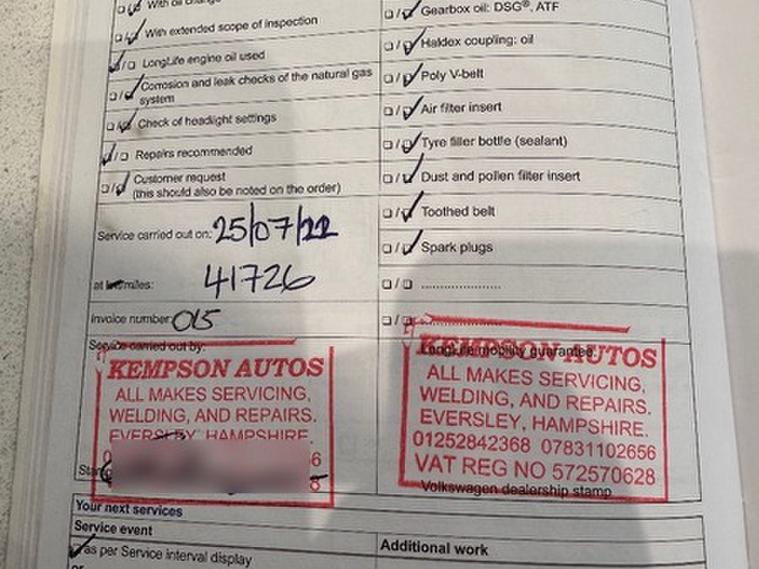 With oil change
With extended scope of inspection
LongLife engine oil used
Corrosion and leak checks of the natural gas
system
Check of headlight settings
Repairs recommended
Customer request
(this should also be noted on the order)
Service carried out on: 25/07/22
at km/miles: 41726
Invoice number: 015
Service carried out by:
KEMPSON AUTOS
ALL MAKES SERVICING,
WELDING, AND REPAIRS.
EVERSLEY, HAMPSHIRE.
Gearbox oil: DSG®, ATF
Haldex coupling: oil
Poly V-belt
Air filter insert
Tyre filler bottle (sealant)
Dust and pollen filter insert
Toothed belt
Spark plugs
LongLife mobility guarantee:
KEMPSON AUTOS
ALL MAKES SERVICING,
WELDING, AND REPAIRS.
EVERSLEY, HAMPSHIRE.
01252842368 07831102656
VAT REG NO 572570628
Volkswagen dealership stamp
Your next services
Service event
as per Service interval display
or
Additional work